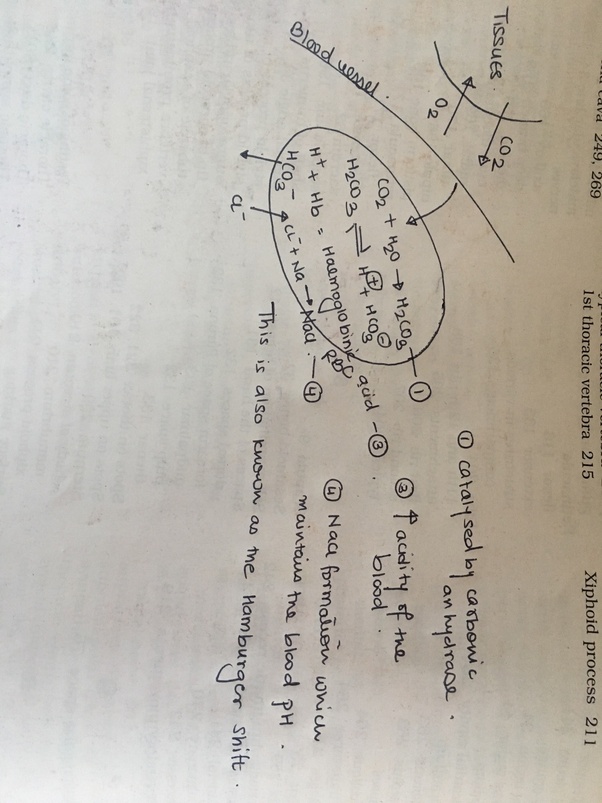 cava 249, 269
1st thoracic vertebra 215
Xiphoid process 211
TISSUES.
O2
CO2
Blood vessel.
CO2 + H2O → H2CO3 — ①
H2CO3 ⇌ H+ + HCO3−
H+ + Hb = Haemoglobinic acid — ③.
HCO3−
Cl− + Na → NaCl. — ④
Cl−
① catalysed by carbonic
anhydrase.
③ ↑ acidity of the
blood.
④ NaCl formation which
maintains the blood pH.
This is also known as the Hamburger shift.